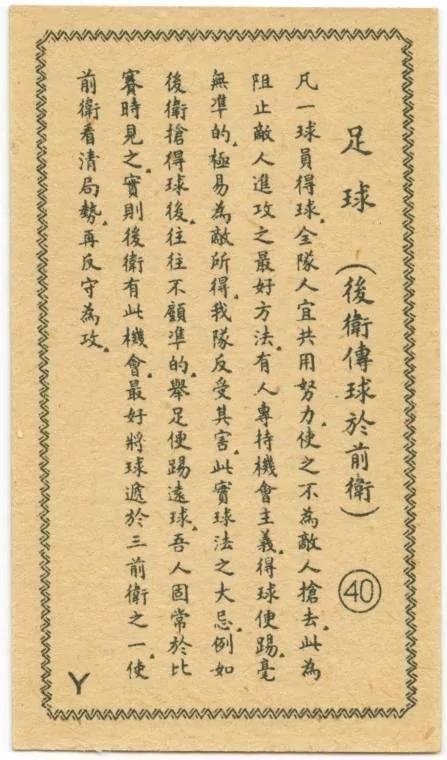 足球(後衛傳球於前衛)
40
凡一球員得球。全隊人宜共用努力。使之不為敵人搶去。此為
阻止敵人進攻之最好方法。有人專持機會主義。得球便踢。毫
無準的。極易為敵所得。我隊反受其害。此實球法之大忌。例如
後衛搶得球後。往往不顧準的。舉足便踢遠球。吾人固常於比
賽時見之。實則後衛有此機會。最好將球遞於三前衛之一。使
前衛看清局勢。再反守為攻。
Y